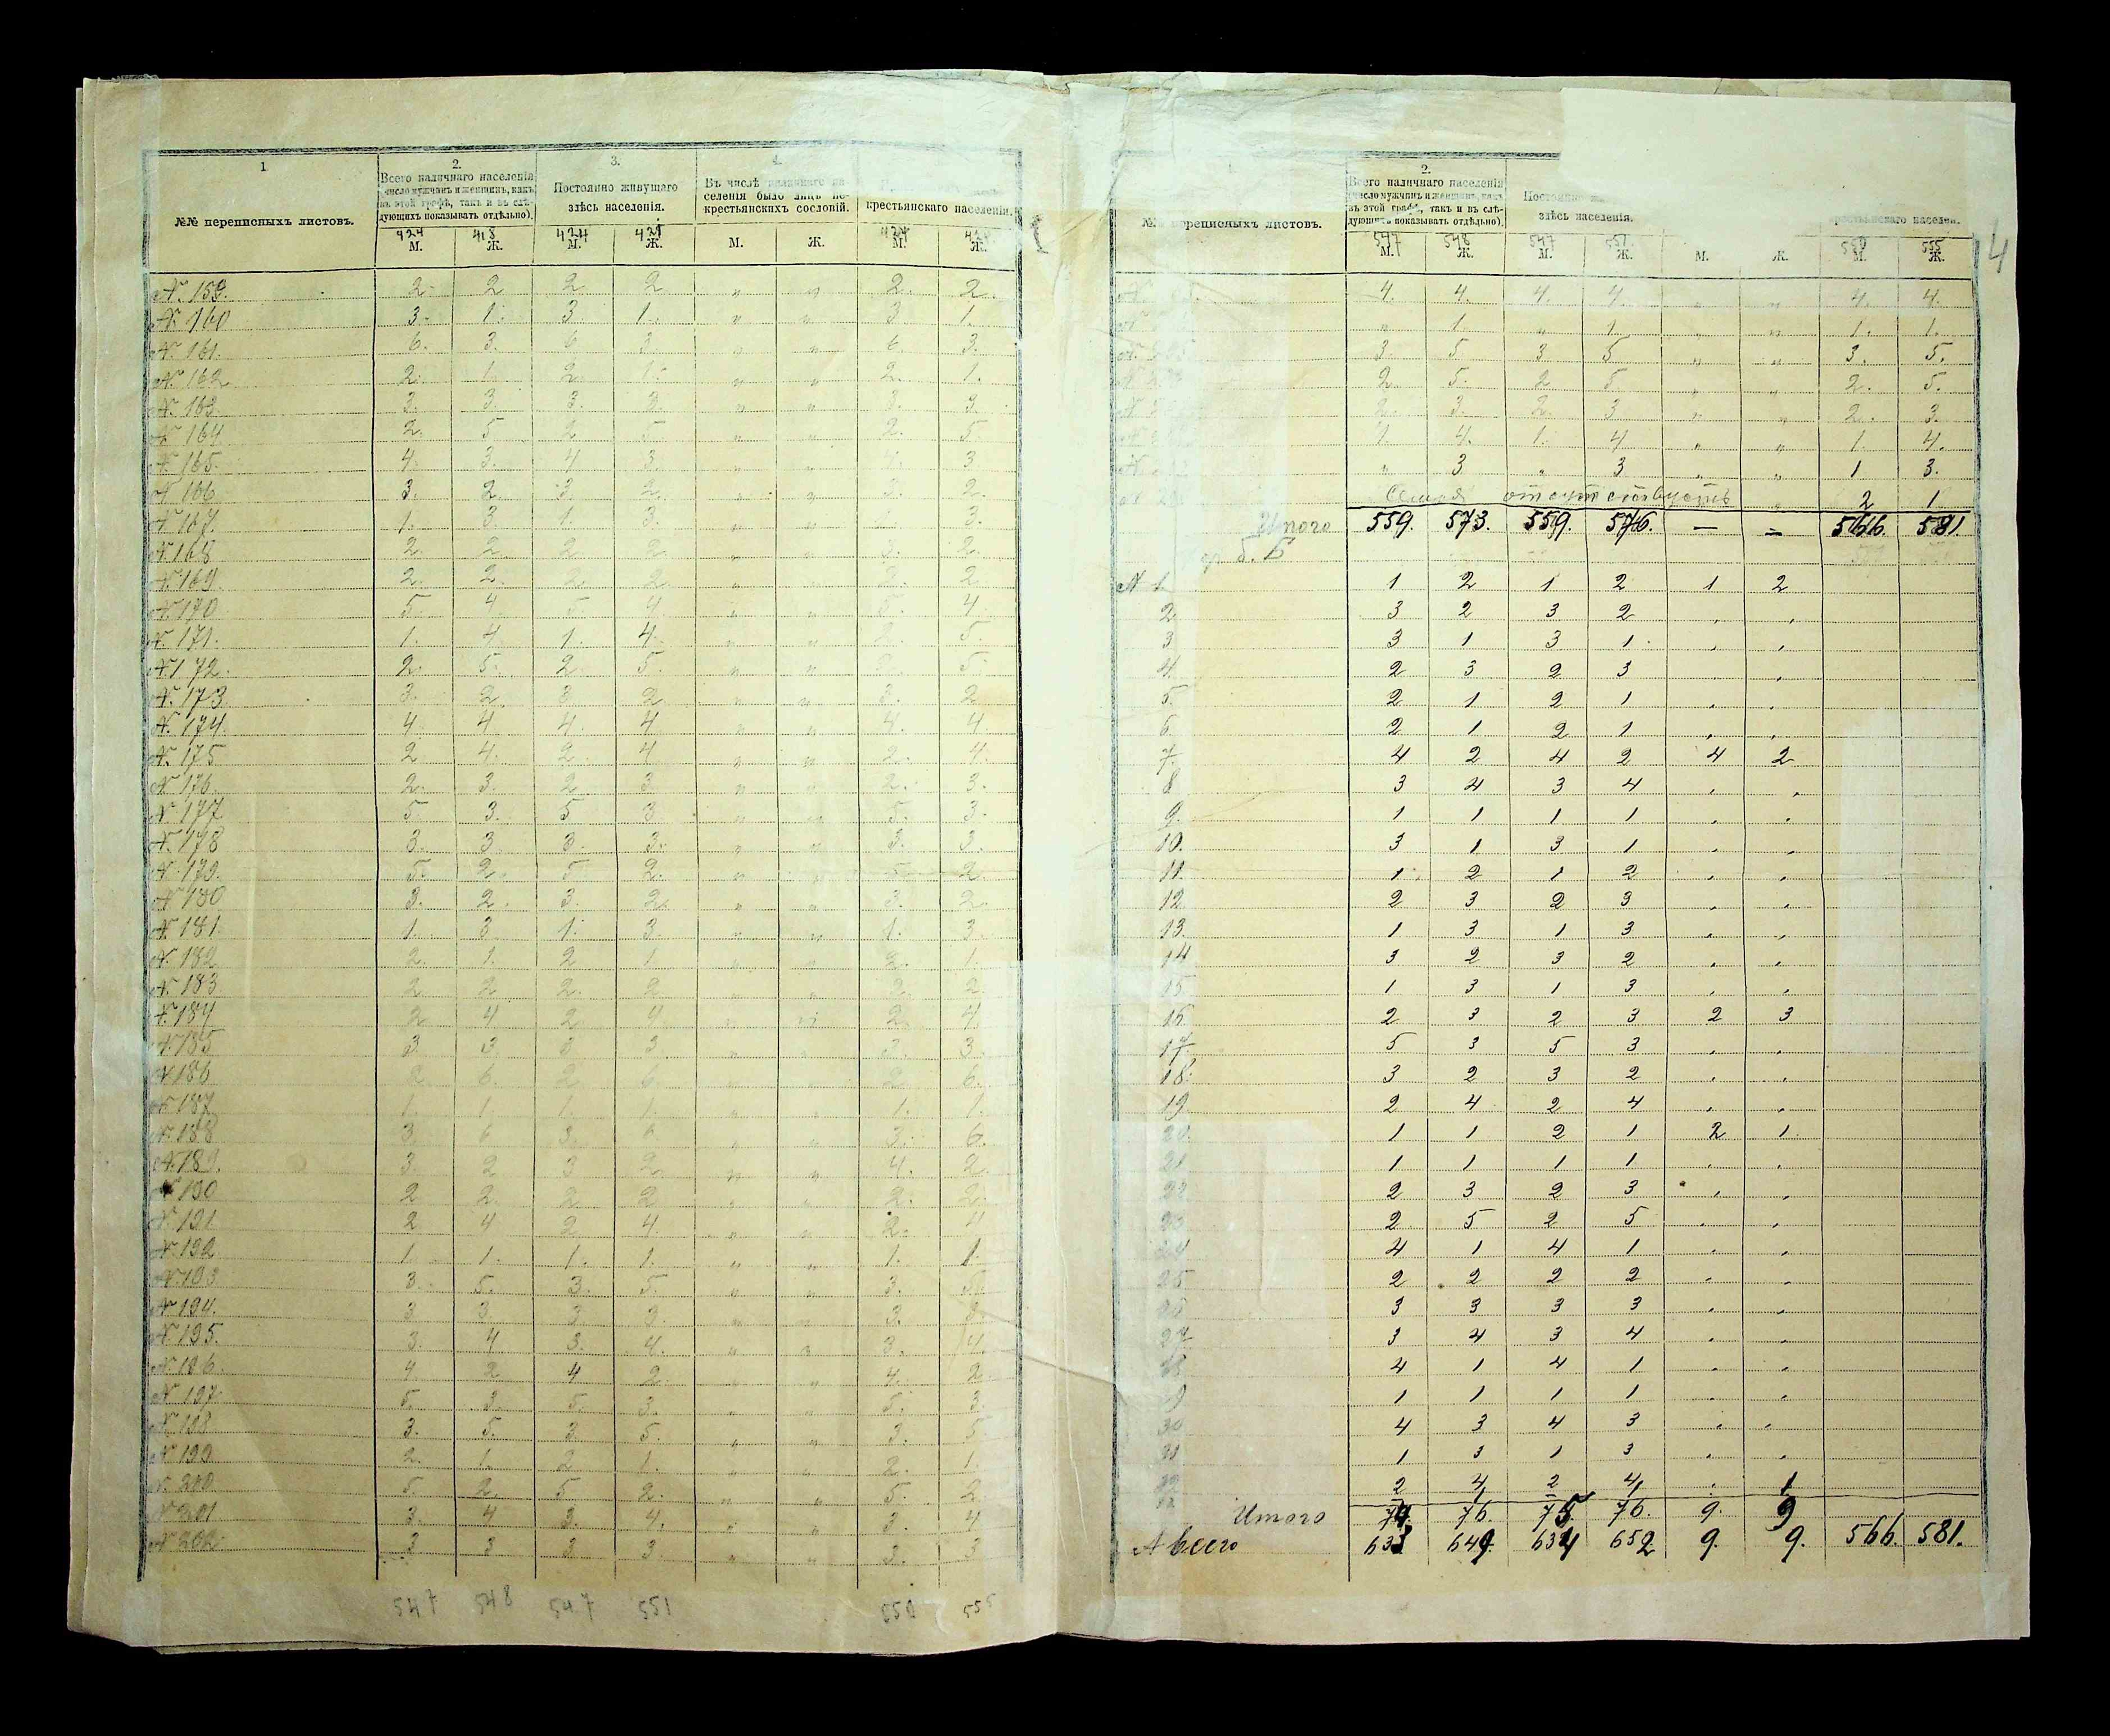 1
2.
3.
4.
№№ переписныхъ листовъ.
Всего наличнаго населенія
(число мужчинъ и женщинъ, какъ
въ этой графѣ, такъ и въ слѣ-
дующихъ показывать отдѣльно).
Постоянно живущаго
здѣсь населенія.
Въ числѣ наличнаго на-
селенія было лицъ не-
крестьянскихъ сословій.
крестьянскаго населенія.
424 418 424 421 424
М. Ж. М. Ж. М. Ж. М. Ж.
№ 159. 2. 2 2. 2 „ „ 2. 2.
№ 160 3. 1. 3 1. „ „ 3. 1.
№ 161. 6. 3. 6 3. „ „ 6 3.
№ 162 2. 1. 2. 1. „ „ 2. 1.
№ 163. 3. 3 3. 3. „ „ 3. 3.
№ 164 2. 5 2 5. „ „ 2. 5
№ 165. 4. 3. 4 3. „ „ 4. 3
№ 166 3. 2. 3. 2. „ „ 3. 2.
№ 167. 1. 3 1. 3. „ „ 1. 3.
№ 168 2. 2. 2. 2. „ „ 2. 2.
№ 169 2. 2. 2. 2. „ „ 2. 2
№ 170 5. 4. 5. 4. „ „ 5. 4
№ 171. 1. 4. 1. 4. „ „ 5.
№ 172. 2. 5. 2. 5. „ „ 5.
№ 173 3. 2. 3. 2 „ „ 3. 2
№ 174. 4 4 4. 4 „ „ 4. 4.
№ 175 2. 4. 2. 4 „ „ 2. 4.
№ 176 2. 3. 2. 3 „ „ 2. 3.
№ 177 5. 3. 5 3. „ „ 5. 3.
№ 178 3. 3 3. 3. „ „ 3. 3.
№ 179. 5. 2. 5 2. „ „ 5. 2.
№ 180 3. 2. 3. 2. „ „ 3. 2.
№ 181. 1. 3 1. 3. „ „ 1. 3.
№ 182 2. 1. 2 1. „ „ 2. 1.
№ 183 2. 2 2. 2 „ „ 2. 2
№ 184 2 4 2 4. „ „ 2. 4.
№ 185 3 3 3 3. „ „ 3. 3.
№ 186 2. 6. 2 6. „ „ 2 6.
№ 187 1. 1. 1. 1. „ „ 1. 1.
№ 188 3. 6 3. 6 „ „ 3. 6.
№ 189. 3. 2 3 2. „ „ 4. 2.
№ 190 2 2. 2. 2 „ „ 2. 2.
№ 191 2 4 2. 4. „ „ 2. 4
№ 192 1. 1. 1. 1. „ „ 1. 1.
№ 193 3. 5. 3. 5. „ „ 3. 5.
№ 194. 3 3. 3 3. „ „ 3. 3.
№ 195. 3. 4 3. 4. „ „ 3. 4.
№ 196. 4 2 4 2. „ „ 4. 2.
№ 197. 5. 3. 5. 3. „ „ 5. 3.
№ 198. 3. 5. 3. 5. „ „ 3. 5.
№ 199. 2. 1. 2 1. „ „ 2. 1.
№ 200 5. 2. 5 2. „ „ 5. 2
№ 201 3. 4 3. 4. „ „ 3. 4
№ 202. 3 3 3 3. „ „ 3. 3
547 548 547 551 550 555
4
2.
№ переписныхъ листовъ.
Всего наличнаго населенія
(число мужчинъ и женщинъ, какъ
въ этой графѣ, такъ и въ слѣ-
дующихъ показывать отдѣльно).
Постоянно
здѣсь населенія.
крестьянскаго населен.
547 548 547 551 550 555
М. Ж. М. Ж. М. Ж. М. Ж.
4. 4. 4. 4. „ „ 4. 4.
„ 1. „ 1. „ „ 1. 1.
3. 5. 3 5 „ „ 3. 5.
2. 5. 2 5 „ „ 2. 5.
2. 3. 2. 3 „ „ 2. 3.
1. 4. 1. 4 „ „ 1. 4.
„ 3 „ 3 „ „ 1 3.
Семья отсутствуетъ „ 2 1.
Итого 559. 573. 559. 576. — — 566. 581.
№ 1. 1 2 1 2 1 2
2. 3 2 3 2 „ „
3 3 1 3 1 „ „
4. 2 3 2 3 „ „
5. 2 1 2 1 „ „
6. 2 1 2 1 „ „
7. 4 2 4 2 4 2
8 3 4 3 4 „ „
9. 1 1 1 1 „ „
10. 3 1 3 1 „ „
11. 1 2 1 2 „ „
12 2 3 2 3 „ „
13. 1 3 1 3 „ „
14 3 2 3 2 „ „
15. 1 3 1 3 „ „
16. 2 3 2 3 2 3
17. 5 3 5 3 „ „
18. 3 2 3 2 „ „
19. 2 4 2 4 „ „
20. 1 1 2 1 2 1
21 1 1 1 1 „ „
22 2 3 2 3 „ „
23 2 5 2 5 „ „
24 4 1 4 1 „ „
25 2 2 2 2 „ „
26 3 3 3 3 „ „
27 3 4 3 4 „ „
28 4 1 4 1 „ „
29 1 1 1 1 „ „
30 4 3 4 3 „ „
31 1 3 1 3 „ „
32 2 4 2 4 „ 1
Итого 74. 76. 75 76. 9. 9
А всего 633 649. 634 652 9. 9. 566. 581.